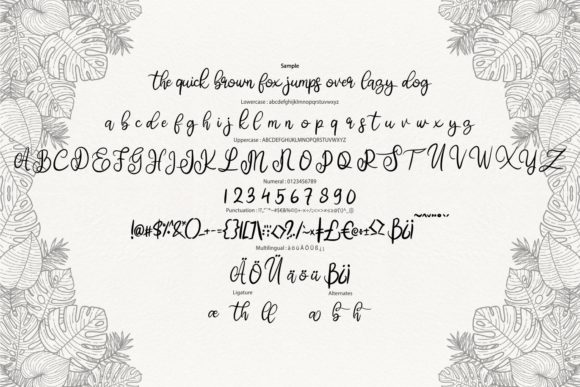 Sample
the quick brown fox jumps over lazy dog
Lowercase : abcdefghijklmnopqrstuvwxyz
a b c d e f g h i j k l m n o p q r s t u v w x y z
Uppercase : ABCDEFGHIJKLMNOPQRSTUVWXYZ
A B C D E F G H I J K L M N O P Q R S T U V W X Y Z
Numeral : 0123456789
1 2 3 4 5 6 7 8 9 0
Punctuation :
Multilingual : ä ö ü Ä Ö Ü ß ¿ ¡
Ä Ö Ü ä ö ü ß
Ligature Alternates
æ th ll a b h